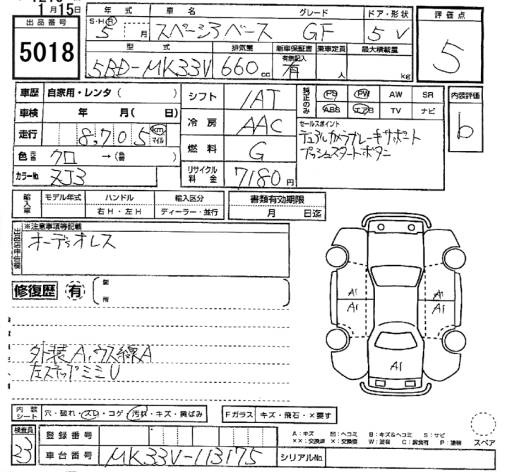 1月15日
出品番号 S-H R 年式 車名 グレード ドア・形状 評価点
5018 5月 スペーシアベース GF 5 V 5
型式 排気量 新車保証書 乗車定員 最大積載量
有無記入
5BD-MK33V 660cc 有 人 kg
車歴 自家用・レンタ( ) シフト IAT 純正のみ PS PW AW SR 内装評価
車検 年 月( 日) 冷房 AAC ABS エアB TV ナビ b
走行 8,705 km マイル 燃料 G セールスポイント
デュアルカメラブレーキサポート
プッシュスタートボタン
色 元色 クロ →( 替)
カラーNo. ZJ3 リサイクル料金 7180円
輸入車 モデル年式 ハンドル 輸入区分 書類有効期限
年 右H・左H ディーラー・並行 月 日迄
※注意事項等記載
オーディオレス
A1 A1
A1
A1
修復歴 有 箇所
外装A、ウス線A
左ステップミニU
内装シート 穴・破れ・スレ・コゲ 汚れ・キズ・黄ばみ Fガラス キズ・飛石・×要す
検査員 登録番号 A:キズ U:ヘコミ B:キズ&ヘコミ S:サビ
XX:交換済 X:交換 W:波 C:腐食 P:塗装 スペア
33 車台番号 MK33V-113175 シリアルNo.